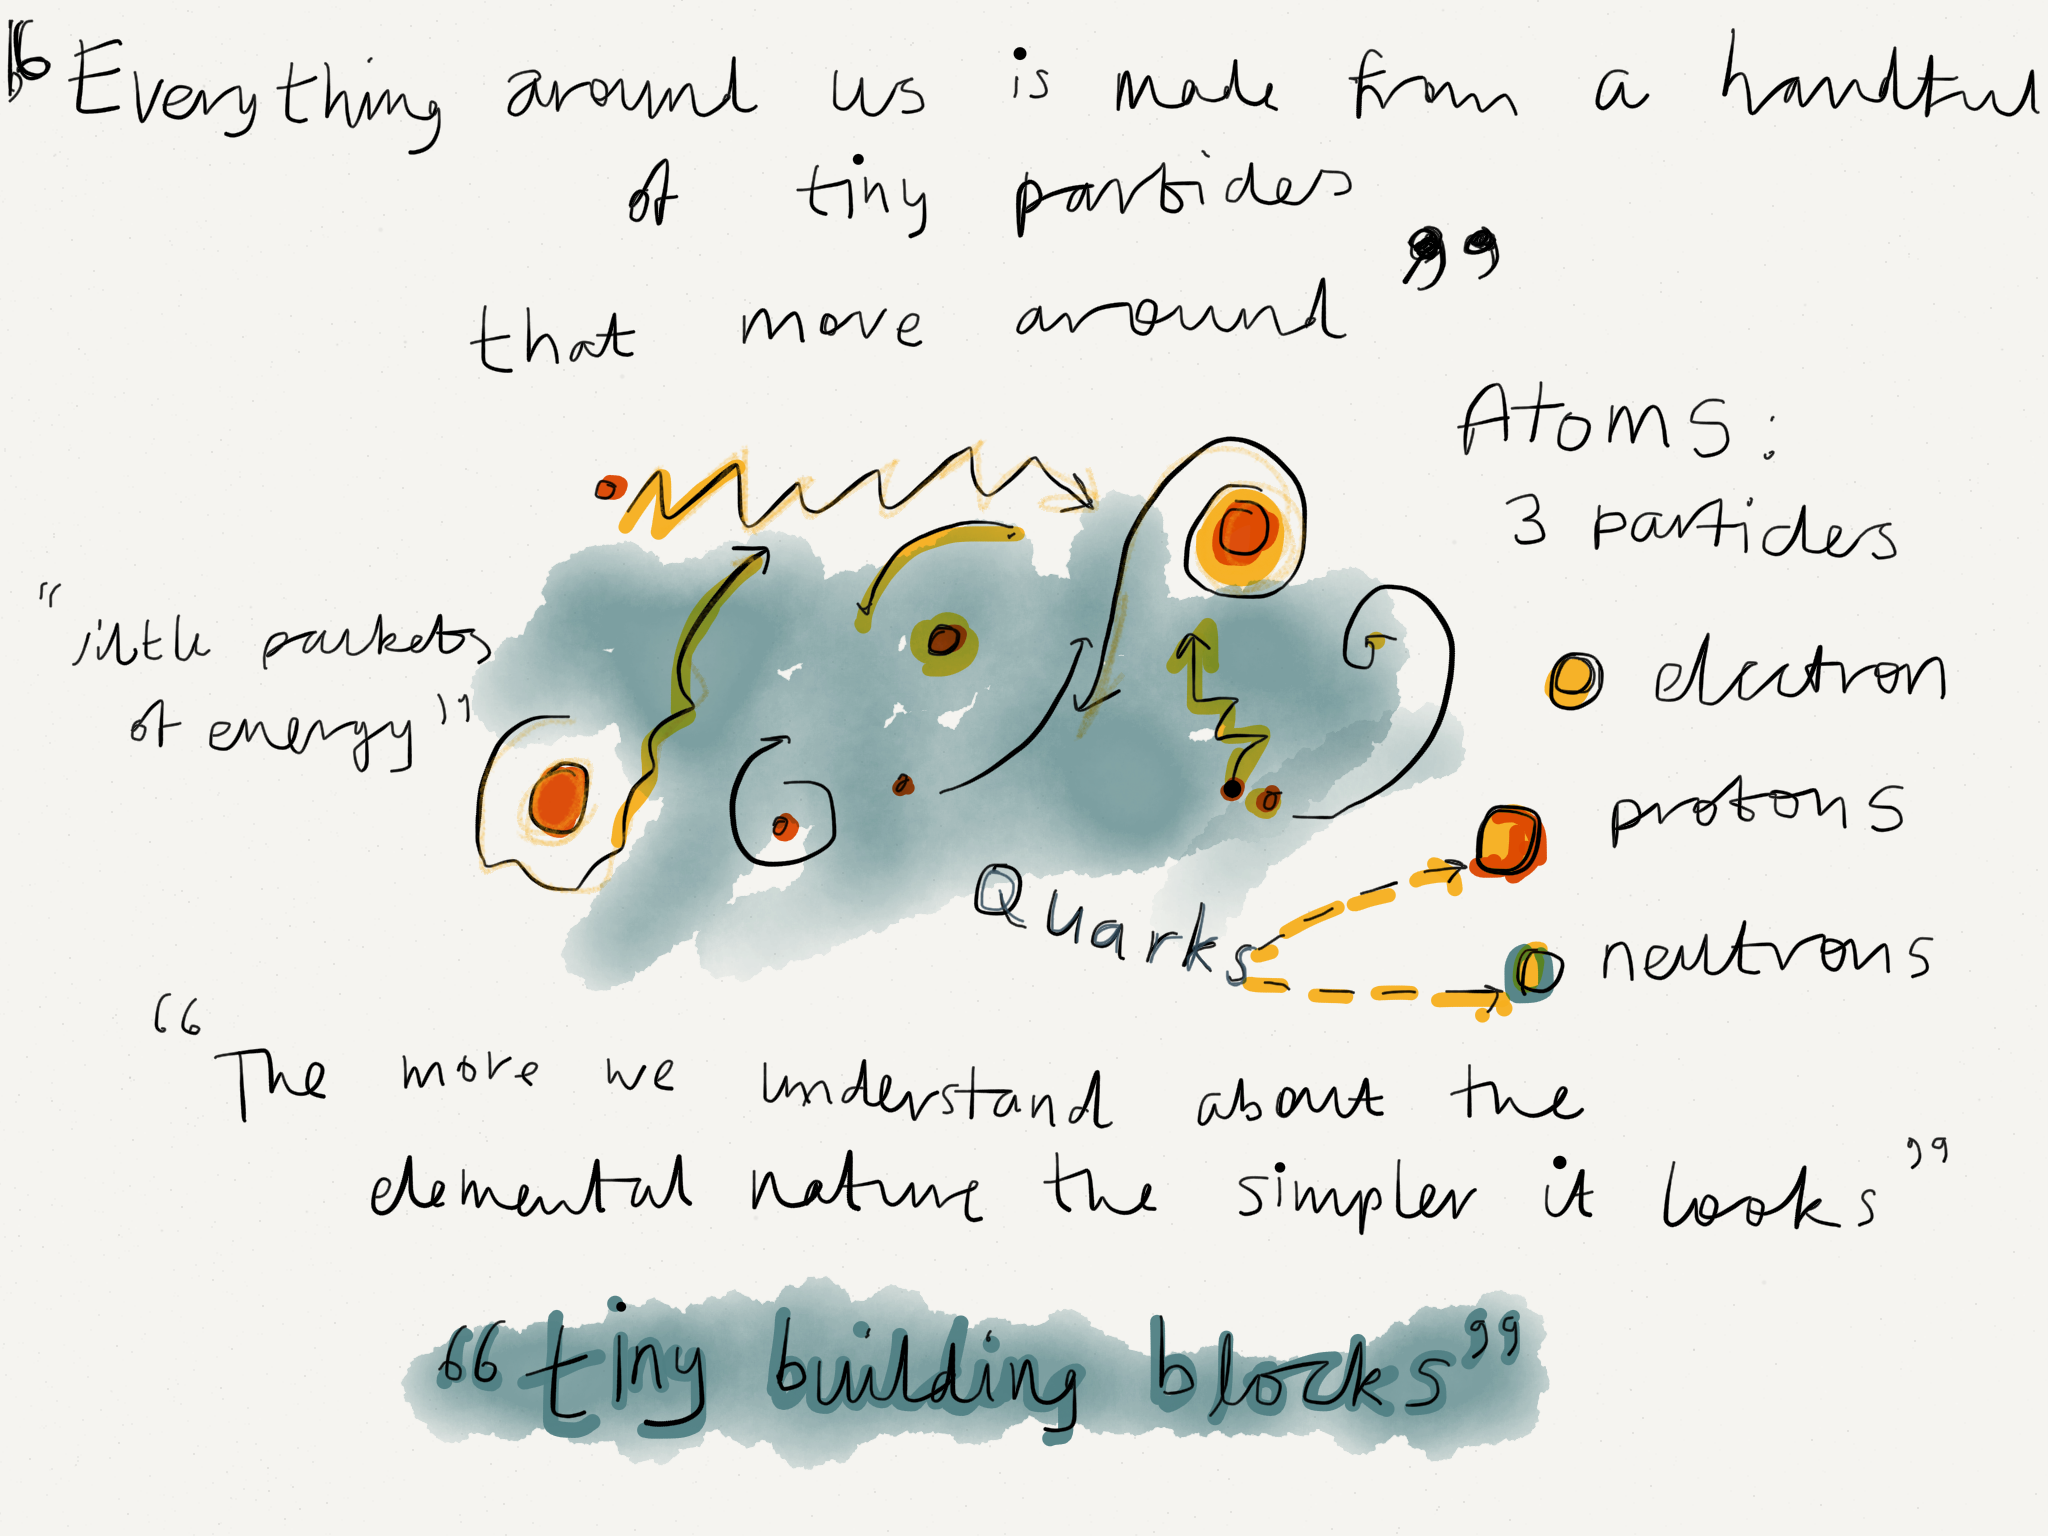 “Everything around us is made from a handful
of tiny particles
that move around”
Atoms:
3 particles
“little packets
of energy”
electron
protons
Quarks
neutrons
“The more we understand about the
elemental nature the simpler it looks”
“tiny building blocks”